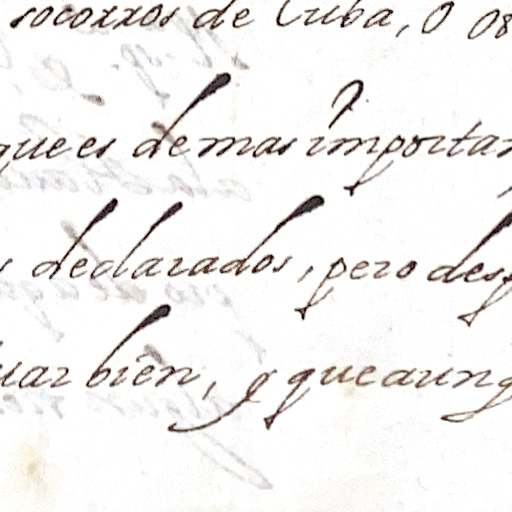 socorros de Cuba, o os
que es de mas importan
declarados, pero desp
uar bien, y que aunq